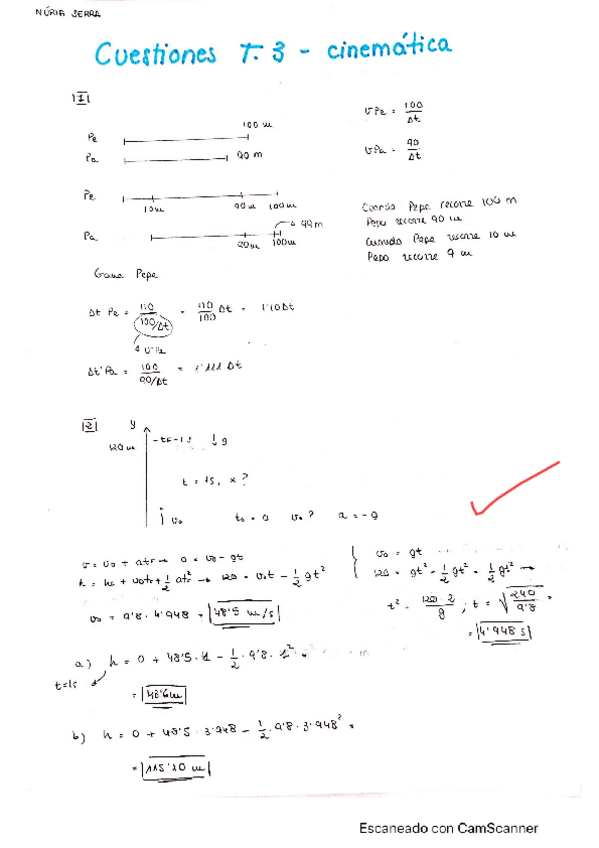 NÚRIA SERRA
Cuestiones T. 3 - cinemática
|1|
100 m
Pe
Pa 90 m
vPe = 100/Δt
vPa = 90/Δt
Pe
10m 90m 100m
99m
Pa
90m 100m
Cuando Pepe recorre 100 m
Paco recorre 90 m
Cuando Pepe recorre 10 m
Paco recorre 9 m
Gana Pepe
Δt Pe = 110/(100/Δt) = 110/100 Δt = 1'10Δt
Δt Pa = 100/(90/Δt) = 1'111 Δt
|2|
y
120 m - tF-1s ↓g
t = 1s, x?
v₀ t₀ = 0 v₀? a = -g
v = v₀ + atF → 0 = v₀ - gt
v₀ = gt
h = h₀ + v₀t + 1/2 at² → 120 = v₀t - 1/2 gt²
120 = gt² - 1/2 gt² = 1/2 gt² →
t² = 120·2/g ; t = √(240/9'8) =
v₀ = 9'8 · 4'948 = 48'5 m/s
= 4'948 s
a) h = 0 + 48'5·1 - 1/2 · 9'8 · 1²
t=1s
= 43'6m
b) h = 0 + 48'5 · 3'948 - 1/2 · 9'8 · 3'948² =
= 115'10 m
Escaneado con CamScanner